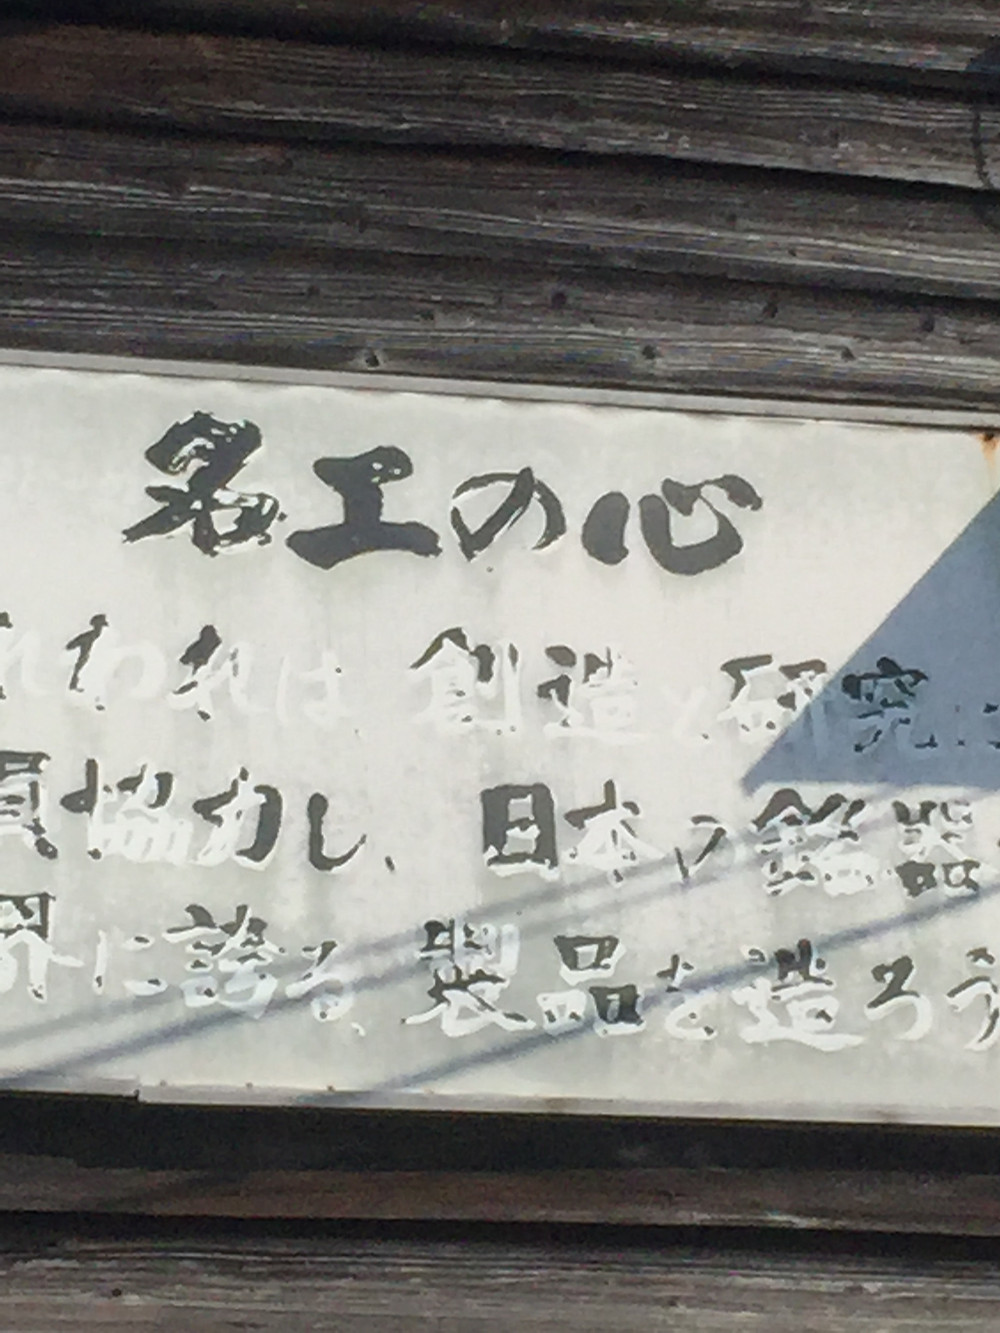 名工の心
われわれは 創造と研究に
員協力し、日本の銘器
界に誇る、製品を造ろう